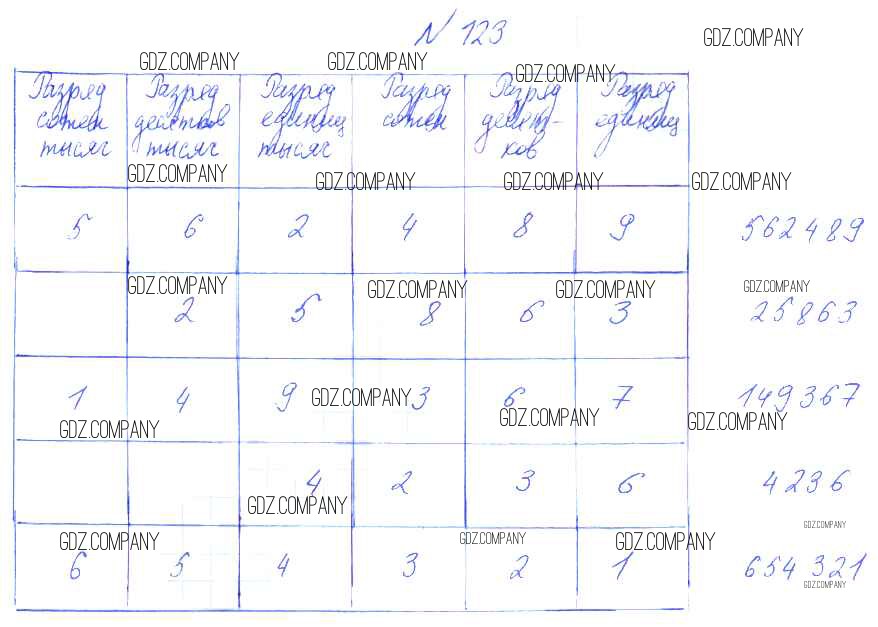 N 123
GDZ.COMPANY
GDZ.COMPANY GDZ.COMPANY GDZ.COMPANY
Разряд Разряд Разряд Разряд Разряд Разряд
сотен десятков единиц сотен десят- единиц
тысяч тысяч тысяч ков
GDZ.COMPANY GDZ.COMPANY GDZ.COMPANY GDZ.COMPANY
5 6 2 4 8 9 562489
GDZ.COMPANY GDZ.COMPANY GDZ.COMPANY GDZ.COMPANY
2 5 8 6 3 25863
1 4 9 3 6 7 149367
GDZ.COMPANY GDZ.COMPANY GDZ.COMPANY GDZ.COMPANY
4 2 3 6 4236
GDZ.COMPANY GDZ.COMPANY
GDZ.COMPANY GDZ.COMPANY GDZ.COMPANY
6 5 4 3 2 1 654321
GDZ.COMPANY